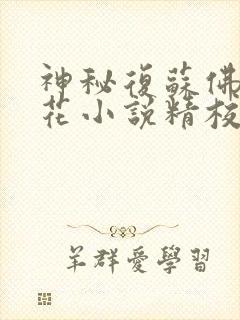 神秘復蘇佛
花小說精校
羊群愛學習